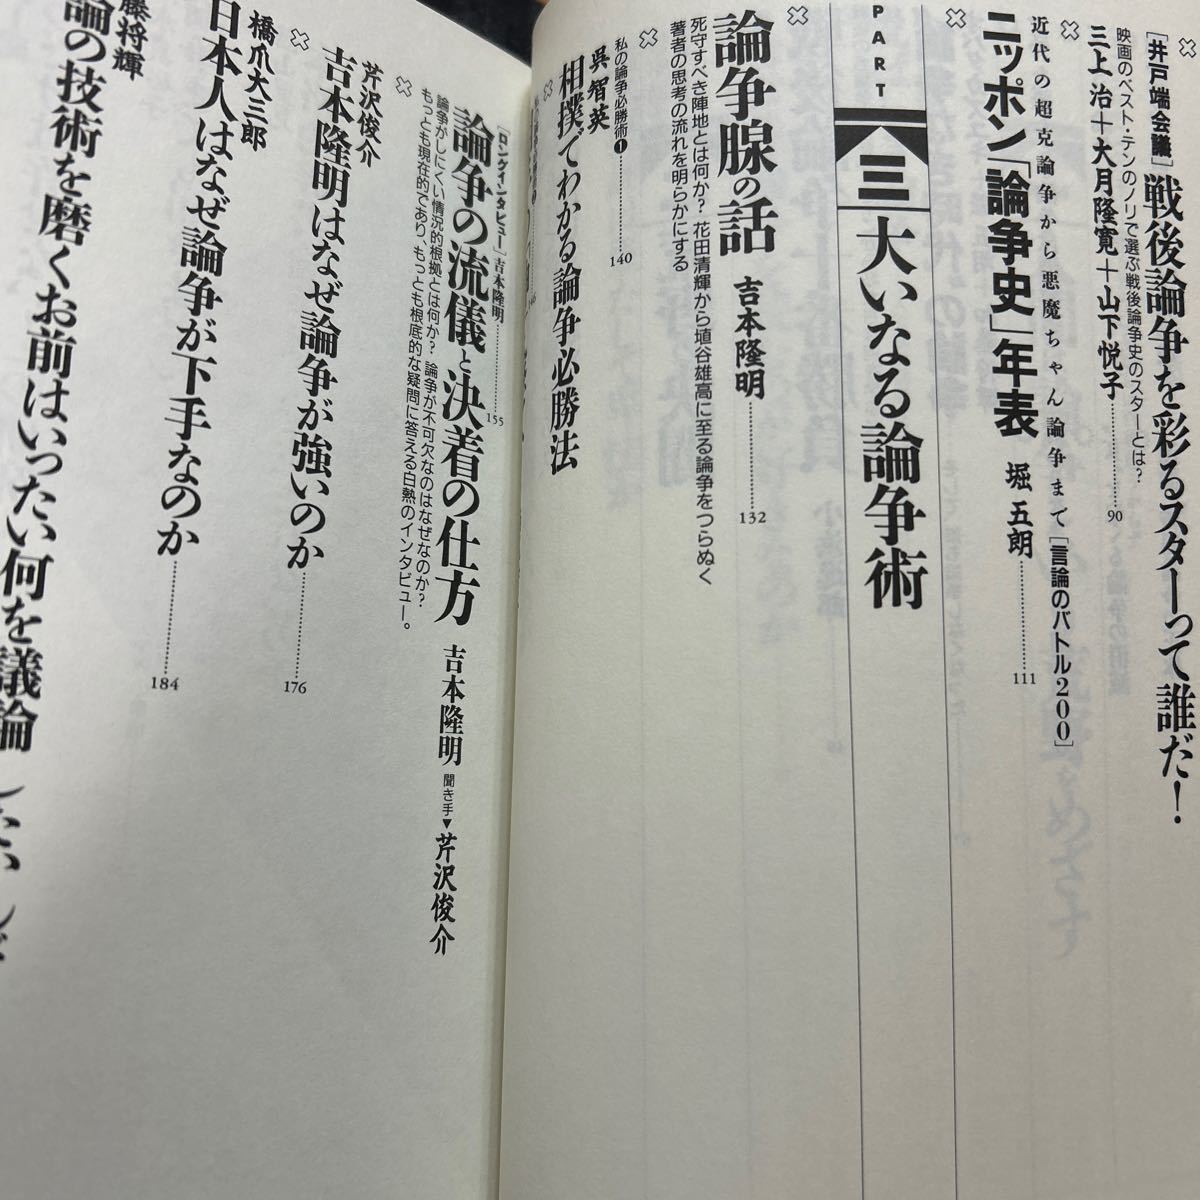 [井戸端会議]戦後論争を彩るスターって誰だ！
映画のベスト・テンのノリで選ぶ戦後論争史のスターとは？
三上 治＋大月隆寛＋山下悦子 90
近代の超克論争から悪魔ちゃん論争まで[言論のバトル200]
ニッポン「論争史」年表 堀 五朗 111
PART 三 大いなる論争術
論争腺の話 吉本隆明 132
死守すべき陣地とは何か？ 花田清輝から埴谷雄高に至る論争をつらぬく
著者の思考の流れを明らかにする
私の論争必勝術❶ 140
呉 智英
相撲でわかる論争必勝法
[ロングインタビュー]吉本隆明 155
論争の流儀と決着の仕方 吉本隆明 聞き手▼芹沢俊介
論争がしにくい情況的根拠とは何か？ 論争が不可欠なのはなぜなのか？
もっとも現在的であり、もっとも根底的な疑問に答える白熱のインタビュー。
芹沢俊介
吉本隆明はなぜ論争が強いのか 176
橋爪大三郎
日本人はなぜ論争が下手なのか 184
藤将輝
論の技術を磨くお前はいったい何を議論